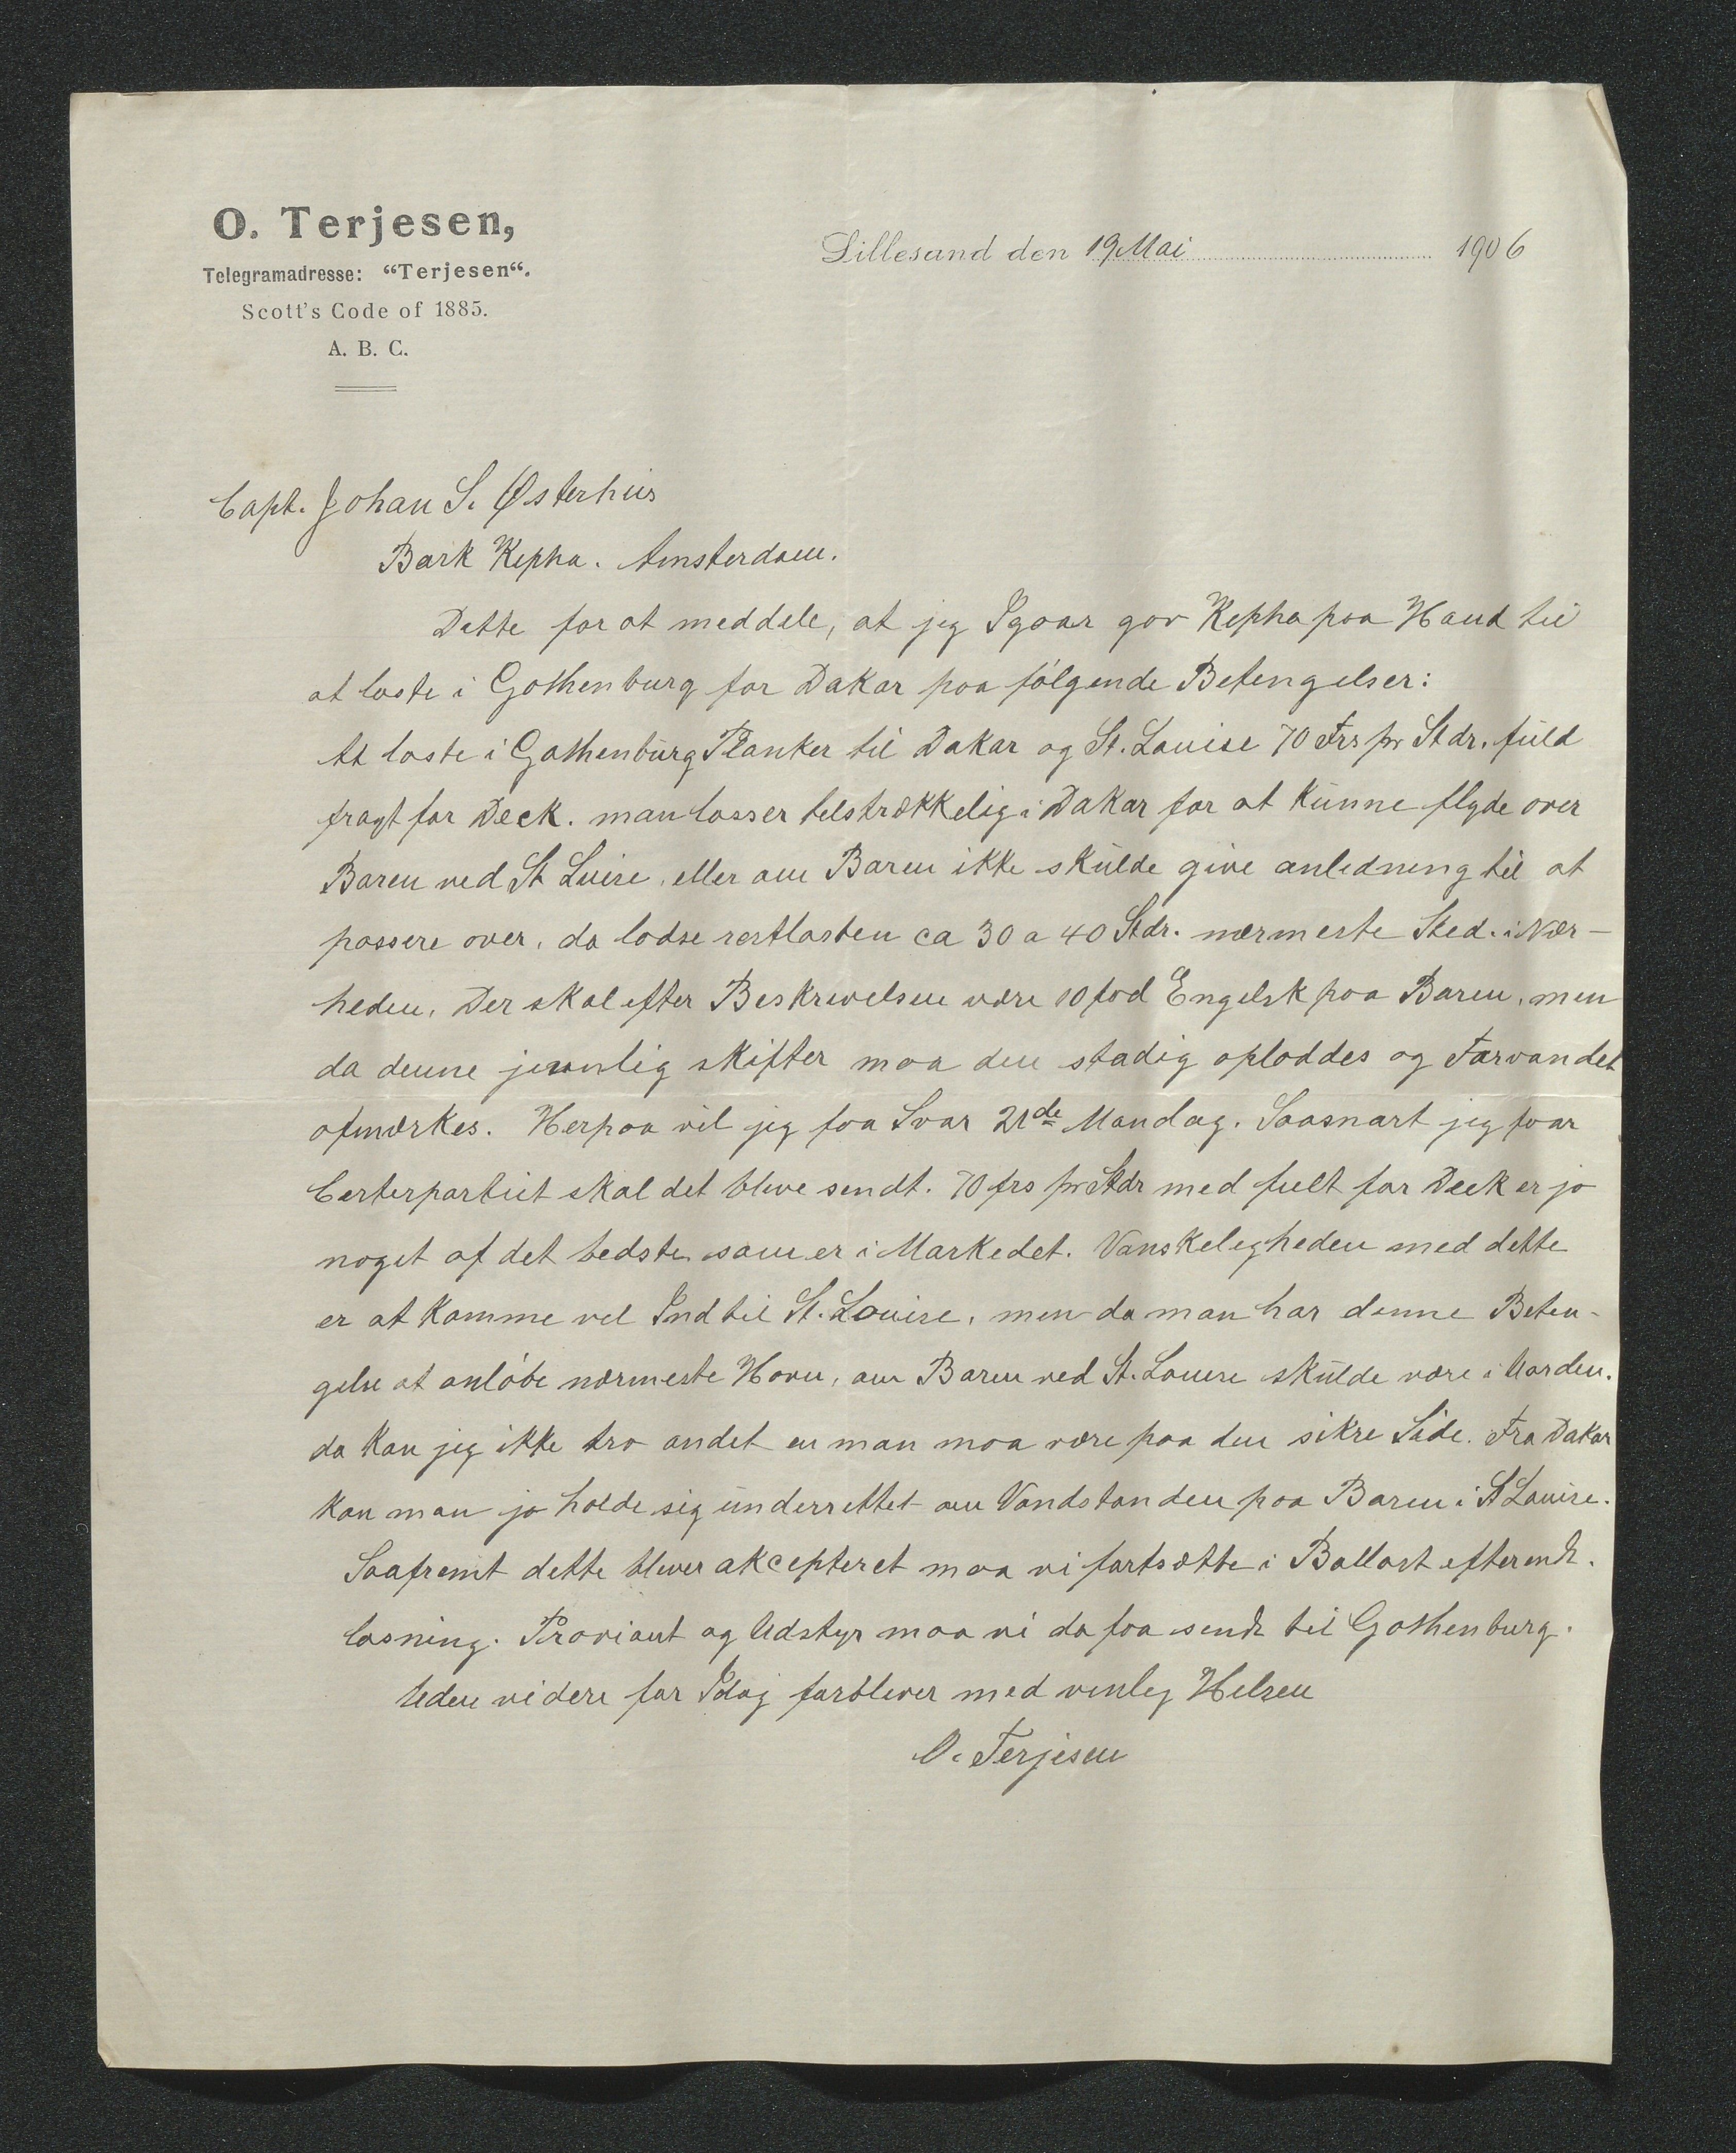 O. Terjesen,
Telegramadresse: “Terjesen“.
Scott's Code of 1885.
A. B. C.
Lillesand den 19 Mai 1906
Capt. Johan S. Østerhus
Bark Kepha. Amsterdam.
Dette for at meddele, at jeg Igaar gav Kepha paa Haand til
at laste i Gothenburg for Dakar paa følgende Betengelser:
At laste i Gothenburg Planker til Dakar og St. Louise 70 Frs pr Stdr. fuld
fragt for Deck. man losser telstrækkelig i Dakar for at kunne flyde over
Baren ved St Luise, eller om Baren ikke skulde give anledning til at
passere over, da lodse restlasten ca 30 a 40 Stdr. nærmeste Sted. i Nær-
heden. Der skal efter Beskrivelsen være 10 fod Engelsk paa Baren, men
da denne jevnlig skifter maa den stadig oploddes og Farvandet
afmærkes. Herpaa vil jeg faa Svar 21de Mandag. Saasnart jeg faar
Certerpartiet skal det bleve sendt. 70 frs pr Stdr med fult for Deck er jo
noget af det bedste som er i Markedet. Vanskelegheden med dette
er at komme vel Ind til St. Louise, men da man har denne Beten-
gelse at anløbe nærmeste Havn, om Baren ved St. Louise skulde være i Uorden.
da kan jeg ikke tro andet en man maa være paa den sikre Side. Fra Dakar
kan man jo holde sig underrettet om Vandstanden paa Baren i St Louise.
Saafremt dette blever akcepteret maa vi fortsætte i Ballast efter endt.
losning. Proviant og Udstyr maa vi da faa sendt til Gothenburg.
Uden videre for Idag forblever med venleg Helsen
O. Terjesen